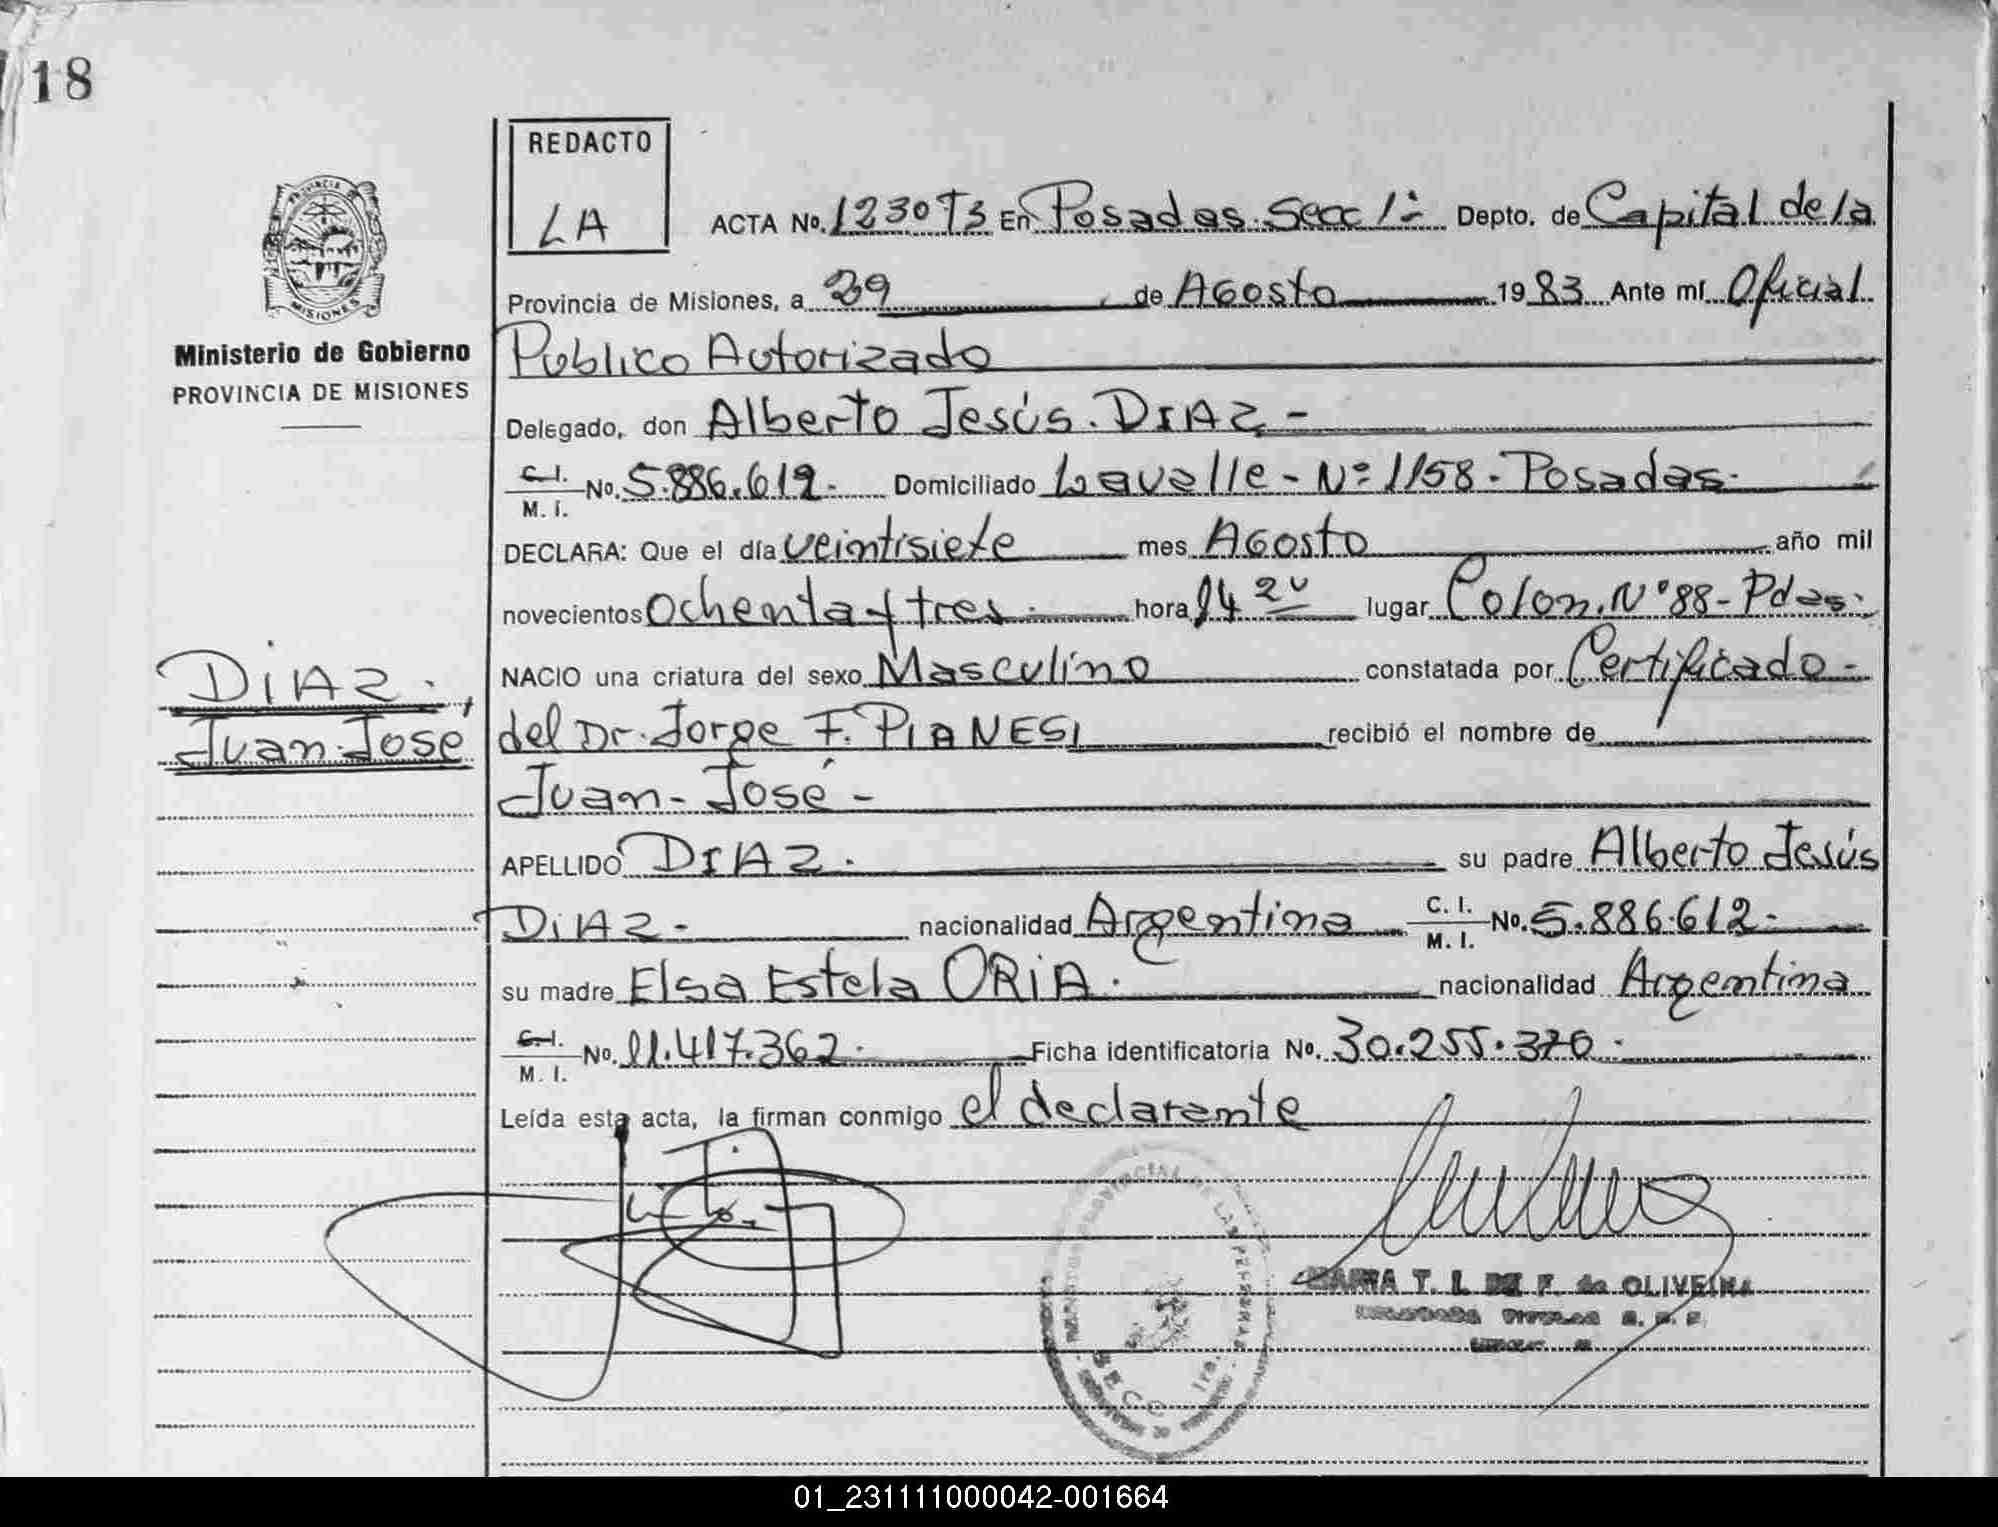 18
REDACTO
LA
ACTA No. 1230T3 En Posadas. Secc 1ª Depto. de Capital de la
Provincia de Misiones, a 29 de Agosto 1983 Ante mí Oficial
Publico Autorizado
Delegado, don Alberto Jesús. DIAZ -
C.I. M.I. No. 5.886.612. Domiciliado Lavalle - Nº 1158 - Posadas.
DECLARA: Que el día veintisiete mes Agosto año mil
novecientos ochenta y tres. hora 14 20 lugar Colon. Nº 88 - Pdas.
NACIO una criatura del sexo Masculino constatada por Certificado -
del Dr. Jorge F. PIANESI recibió el nombre de
Juan - José -
APELLIDO DIAZ. su padre Alberto Jesús
DIAZ - nacionalidad Argentina C.I. M.I. No. 5.886.612.
su madre Elsa Estela ORIA. nacionalidad Argentina
C.I. M.I. No. 11.417.362. Ficha identificatoria No. 30.255.370.
Leída esta acta, la firman conmigo el declarante
PROVINCIA DE MISIONES
Ministerio de Gobierno
PROVINCIA DE MISIONES
DIAZ.,
Juan José
PROVINCIAL DE LAS PERSONAS
SECC. 1ra.
MARIA T. I. DE F. de OLIVEIRA
TITULAR
01_231111000042-001664